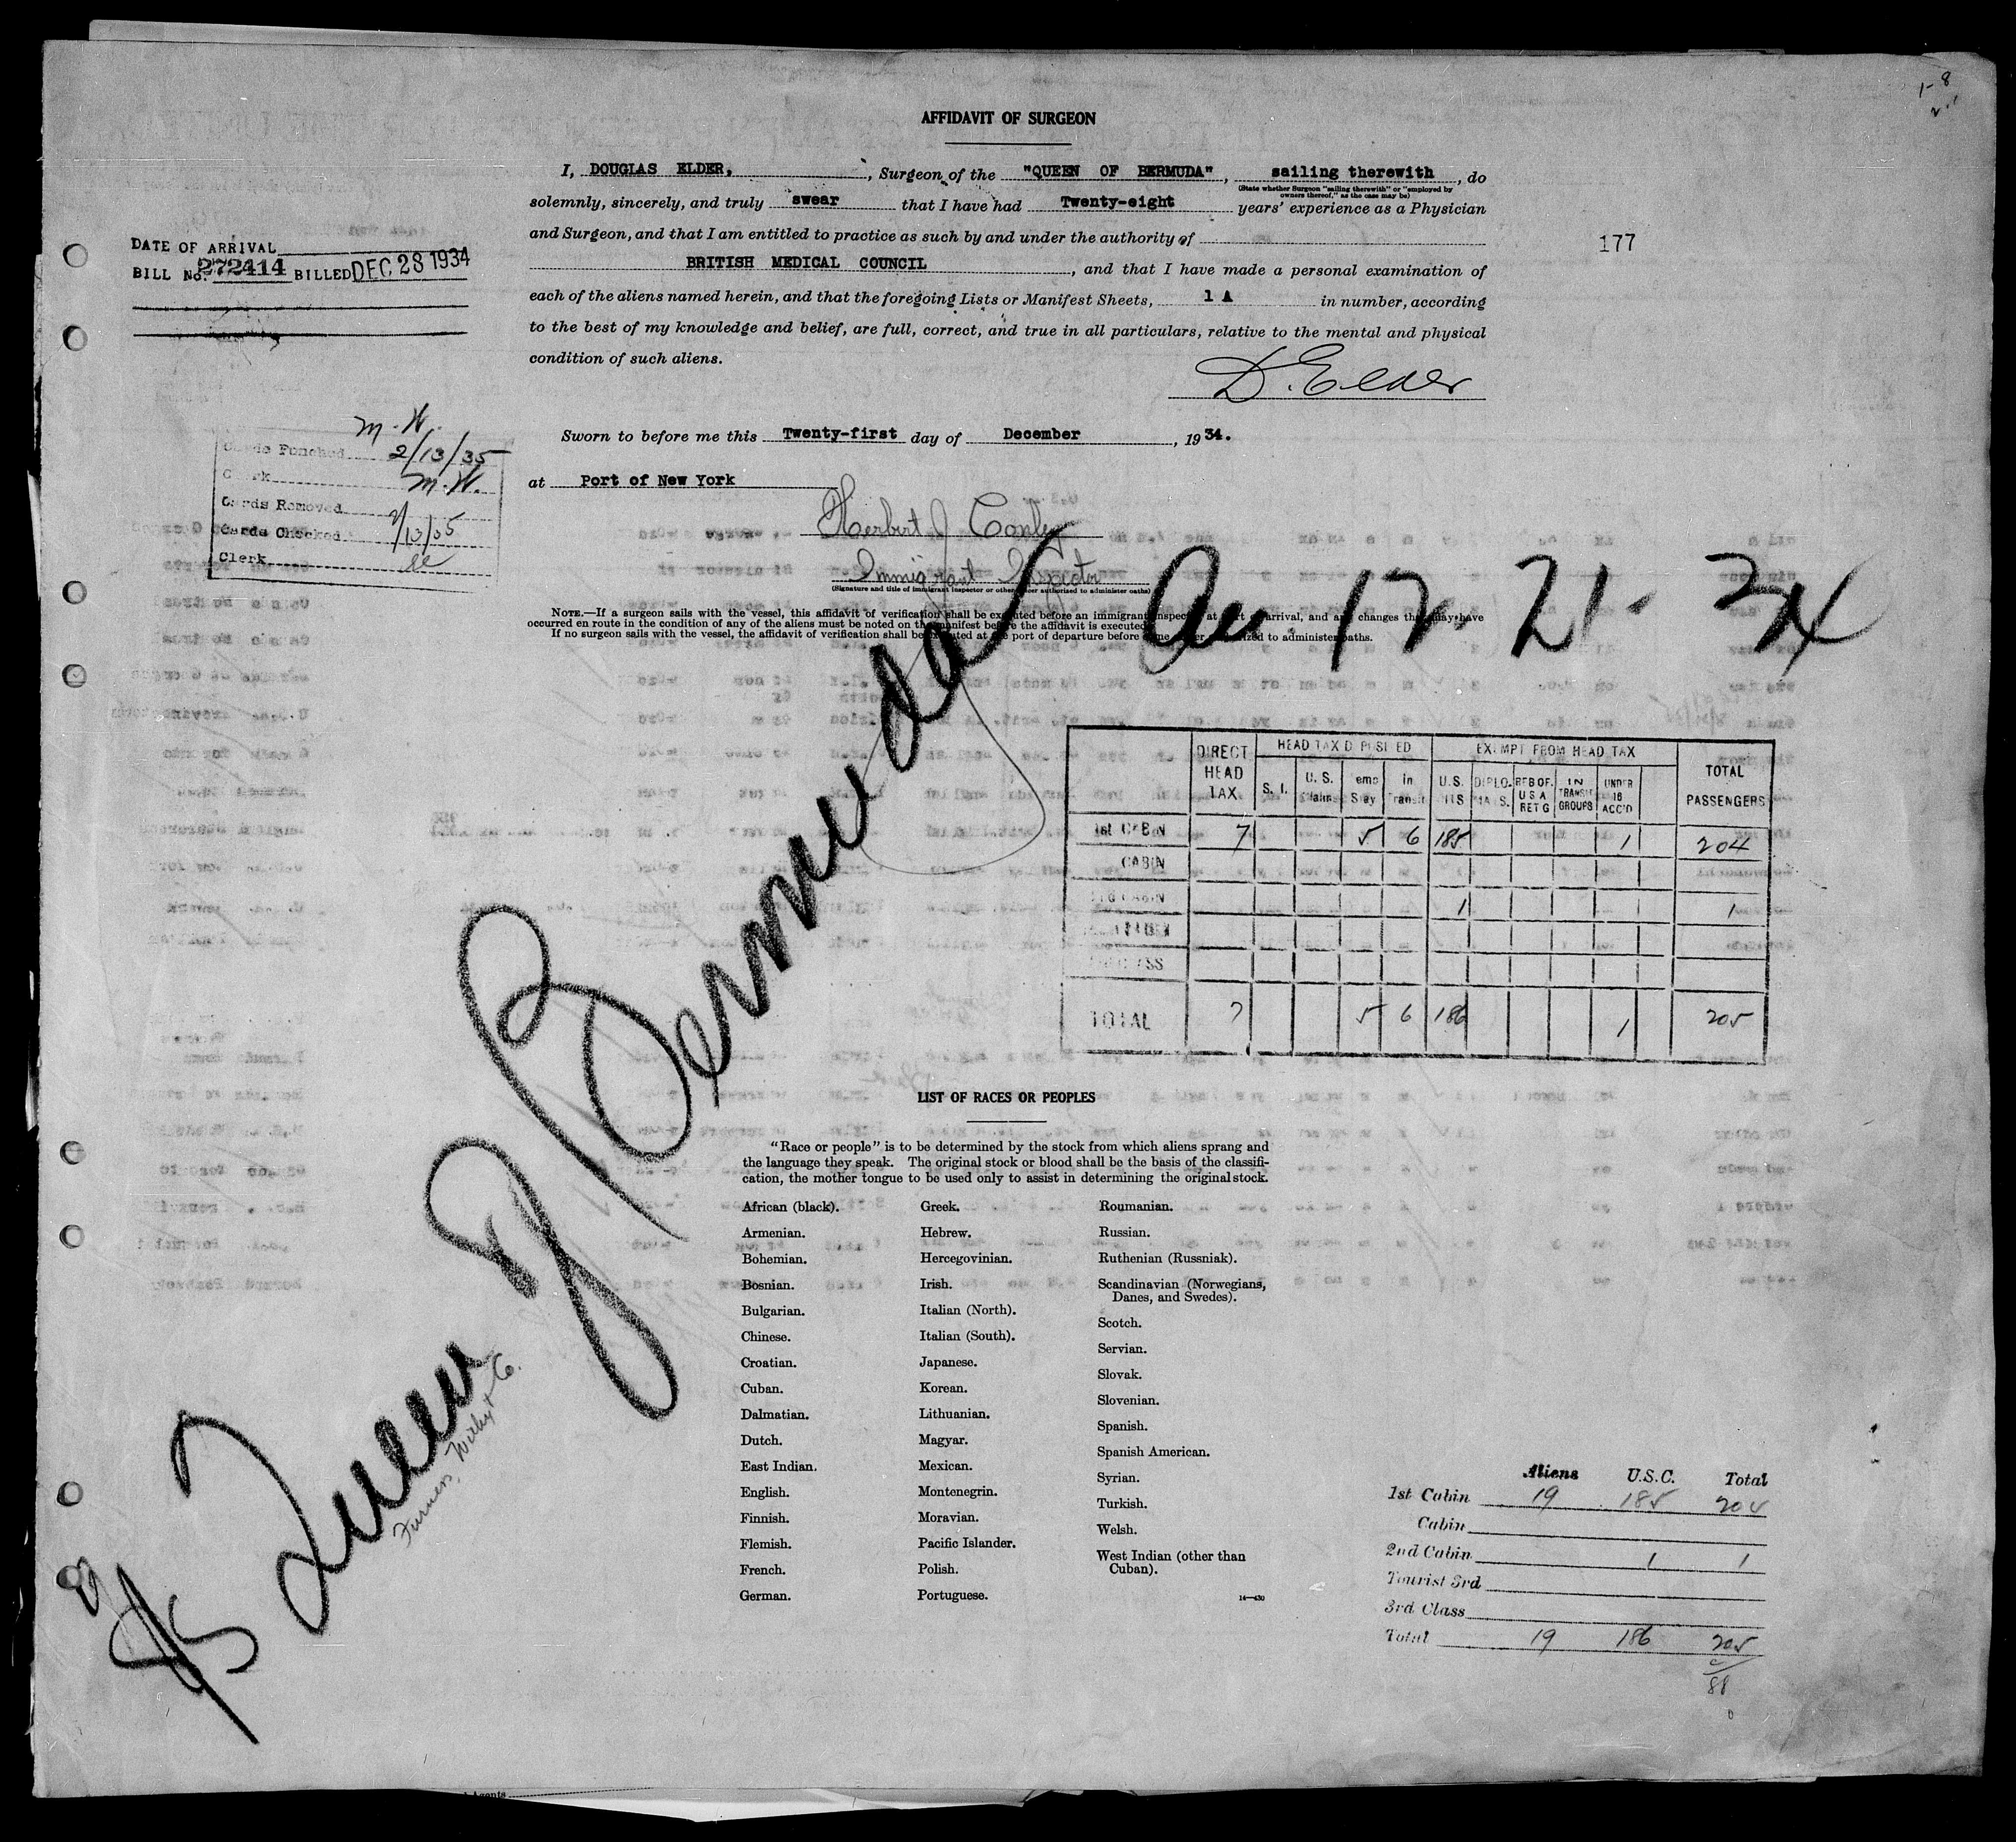 1-8
AFFIDAVIT OF SURGEON
I, DOUGLAS ELDER, , Surgeon of the "QUEEN OF BERMUDA", sailing therewith , do
(State whether Surgeon "sailing therewith" or "employed by owners thereof," as the case may be)
solemnly, sincerely, and truly swear that I have had Twenty-eight years' experience as a Physician
and Surgeon, and that I am entitled to practice as such by and under the authority of
BRITISH MEDICAL COUNCIL , and that I have made a personal examination of
each of the aliens named herein, and that the foregoing Lists or Manifest Sheets, 1 A in number, according
to the best of my knowledge and belief, are full, correct, and true in all particulars, relative to the mental and physical
condition of such aliens.
D. Elder
177
DATE OF ARRIVAL
BILL No. 272414 BILLED DEC 28 1934
Sworn to before me this Twenty-first day of December , 1934.
at Port of New York
Herbert J Conley
Immigrant Inspector
(Signature and title of immigrant inspector or other officer authorized to administer oaths)
M. W.
Cards Punched 2/13/35
Clerk M. W.
Cards Removed
Cards Checked 2/13/35
Clerk
NOTE.—If a surgeon sails with the vessel, this affidavit of verification shall be executed before an immigrant inspector at port of arrival, and any changes that may have
occurred en route in the condition of any of the aliens must be noted on the manifest before the affidavit is executed.
If no surgeon sails with the vessel, the affidavit of verification shall be executed at the port of departure before some officer authorized to administer oaths.
S/S Queen of Bermuda
Arr. 12-21-34
Furness, Withy & Co.
DIRECT HEAD TAX HEAD TAX DEPOSITED EXEMPT FROM HEAD TAX TOTAL PASSENGERS
S. I. U. S. Claim Temp Stay In Transit U.S. CITS DIPLOMATS. RES OF. U S A RET G IN TRANSIT GROUPS UNDER 16 ACC'D
1st CABIN 7 5 6 185 1 204
CABIN
2nd CABIN 1 1
TOTAL 7 5 6 186 1 205
LIST OF RACES OR PEOPLES
"Race or people" is to be determined by the stock from which aliens sprang and
the language they speak. The original stock or blood shall be the basis of the classifi-
cation, the mother tongue to be used only to assist in determining the original stock.
African (black).
Armenian.
Bohemian.
Bosnian.
Bulgarian.
Chinese.
Croatian.
Cuban.
Dalmatian.
Dutch.
East Indian.
English.
Finnish.
Flemish.
French.
German.
Greek.
Hebrew.
Hercegovinian.
Irish.
Italian (North).
Italian (South).
Japanese.
Korean.
Lithuanian.
Magyar.
Mexican.
Montenegrin.
Moravian.
Pacific Islander.
Polish.
Portuguese.
Roumanian.
Russian.
Ruthenian (Russniak).
Scandinavian (Norwegians,
Danes, and Swedes).
Scotch.
Servian.
Slovak.
Slovenian.
Spanish.
Spanish American.
Syrian.
Turkish.
Welsh.
West Indian (other than
Cuban).
14—430
Aliens U.S.C. Total
1st Cabin 19 185 204
Cabin
2nd Cabin 1 1
Tourist 3rd
3rd Class
Total 19 186 205
88